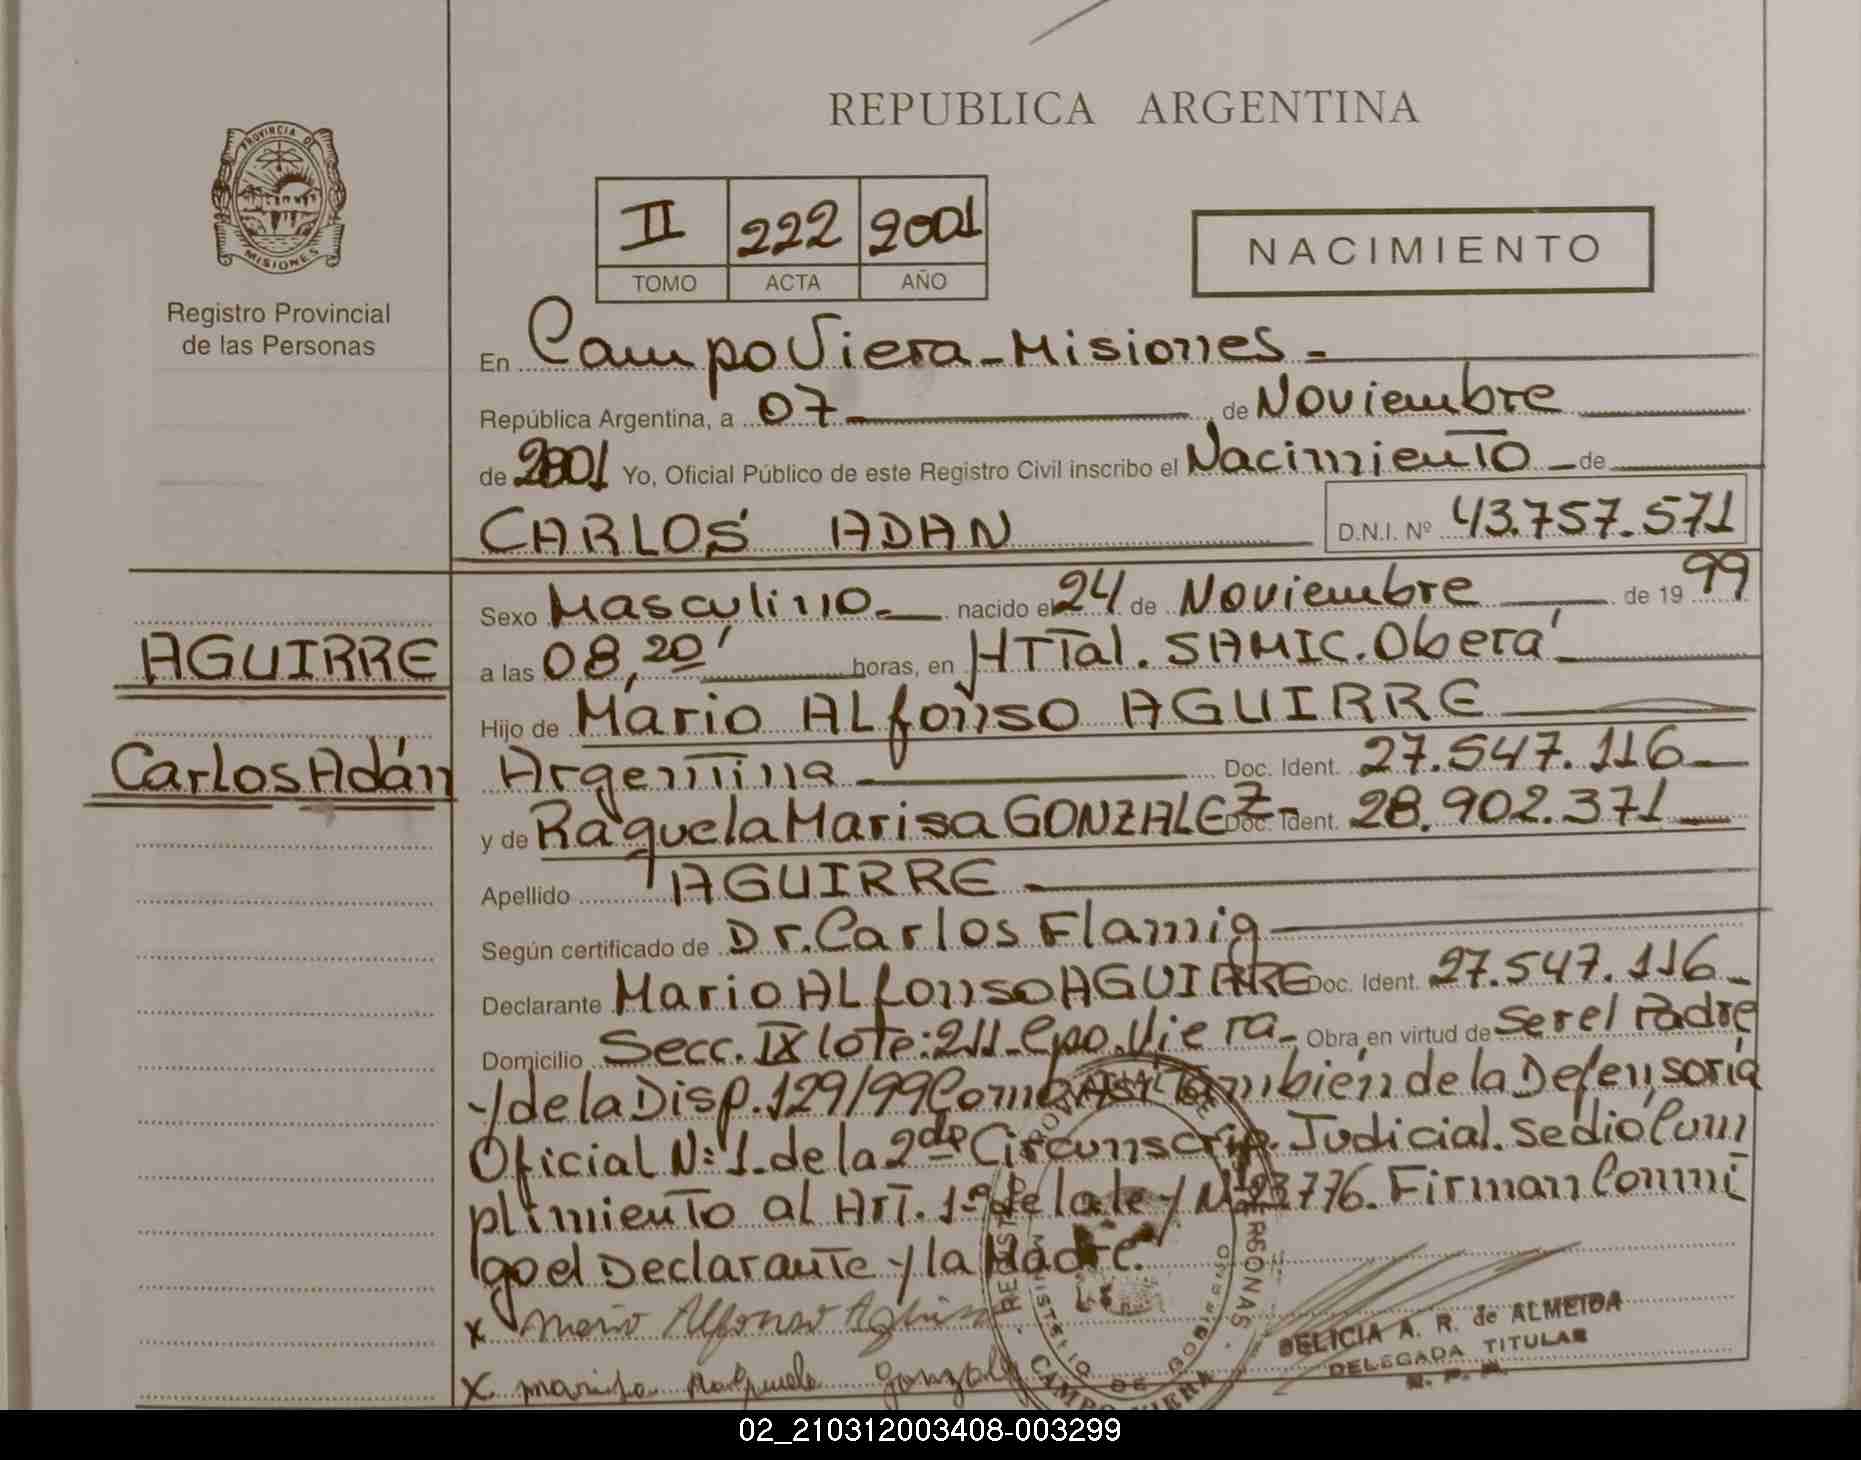 REPUBLICA ARGENTINA
PROVINCIA DE
MISIONES
Registro Provincial
de las Personas
II 222 2001
TOMO ACTA AÑO
NACIMIENTO
En Campo Viera - Misiones -
República Argentina, a 07 de Noviembre
de 2001 Yo, Oficial Público de este Registro Civil inscribo el Nacimiento de
CARLOS ADAN D.N.I. Nº 43.757.571
Sexo Masculino - nacido el 24 de Noviembre de 1999
AGUIRRE
a las 08,20' horas, en HTTal. SAMIC. Oberá
Hijo de Mario ALfonso AGUIRRE
Carlos Adán
Argentina Doc. Ident. 27.547.116
y de Raquela Marisa GONZALEZ - Doc. Ident. 28.902.371
Apellido AGUIRRE
Según certificado de Dr. Carlos Flamig
Declarante Mario ALfonso AGUIRRE Doc. Ident. 27.547.116
Domicilio Secc. IX lote: 211 - Cpo. Viera - Obra en virtud de Ser el Padre
y de la Disp. 129/99 Como Así También de la Defensoría
Oficial N: 1. de la 2da Circunscrip. Judicial. Se dió Cum
plimiento al ArT. 1º de la ley Nº 23776. Firman Conmi
go el Declarante y la Madre.
x Mario Alfonso Aguirre
x Marisa Raquela Gonzale
DELICIA A. R. de ALMEIDA
DELEGADA TITULAR
R. P. P.
MINISTERIO DE GOBIERNO
CAMPO VIERA
02_210312003408-003299